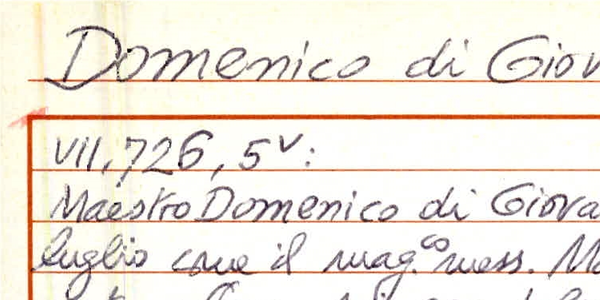 Domenico di Giov
VII, 726, 5v:
Maestro Domenico di Giova
luglio come il mag.co mess. Ma